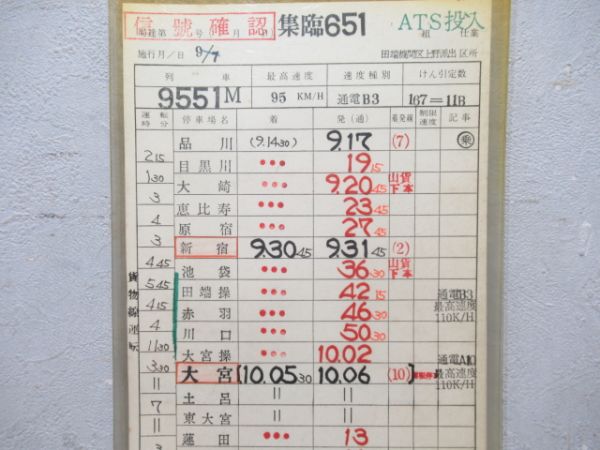 信號確認 集臨651 ATS投入
局達第 号 月 日 組 仕業
施行月/日 9/7 田端機関区上野派出区所
列車 最高速度 速度種別 けん引定数
9551M 95 KM/H 通電B3 167=11B
運転時分 停車場名 着 発(通) 着発線 制限速度 記事
品川 (9.14 30) 9.17 (7) 乗
2 15
目黒川 ••• 19 15
1 30
大崎 ••• 9.20 45 山貨下本
3
恵比寿 ••• 23 45
4
原宿 ••• 27 45
3
新宿 9.30 45 9.31 45 (2)
4 45
池袋 ••• 36 30 山貨下本
5 45
田端操 ••• 42 15 通電B3
4 15
赤羽 ••• 46 30 最高速度 110K/H
4
川口 ••• 50 30
11 30
大宮操 ••• 10.02 通電A10
3 30
大宮 [10.05 30 10.06 (10) 最高速度 110K/H
||
土呂 || ||
7
東大宮 || ||
||
蓮田 ••• 13
3
貨物線運転